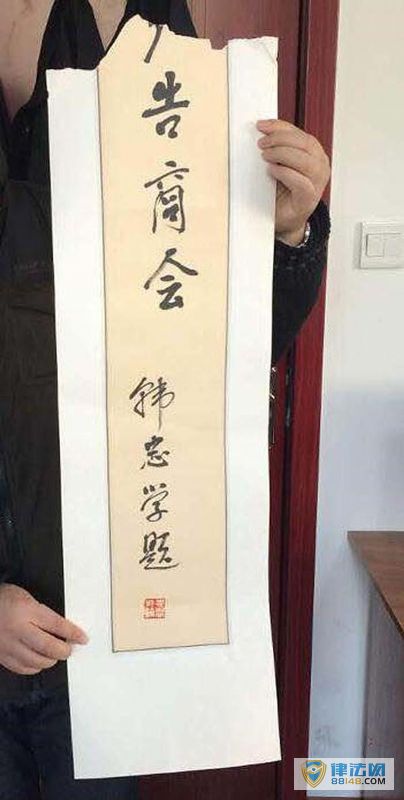 告商会
韩忠学题
律法网
88148.COM